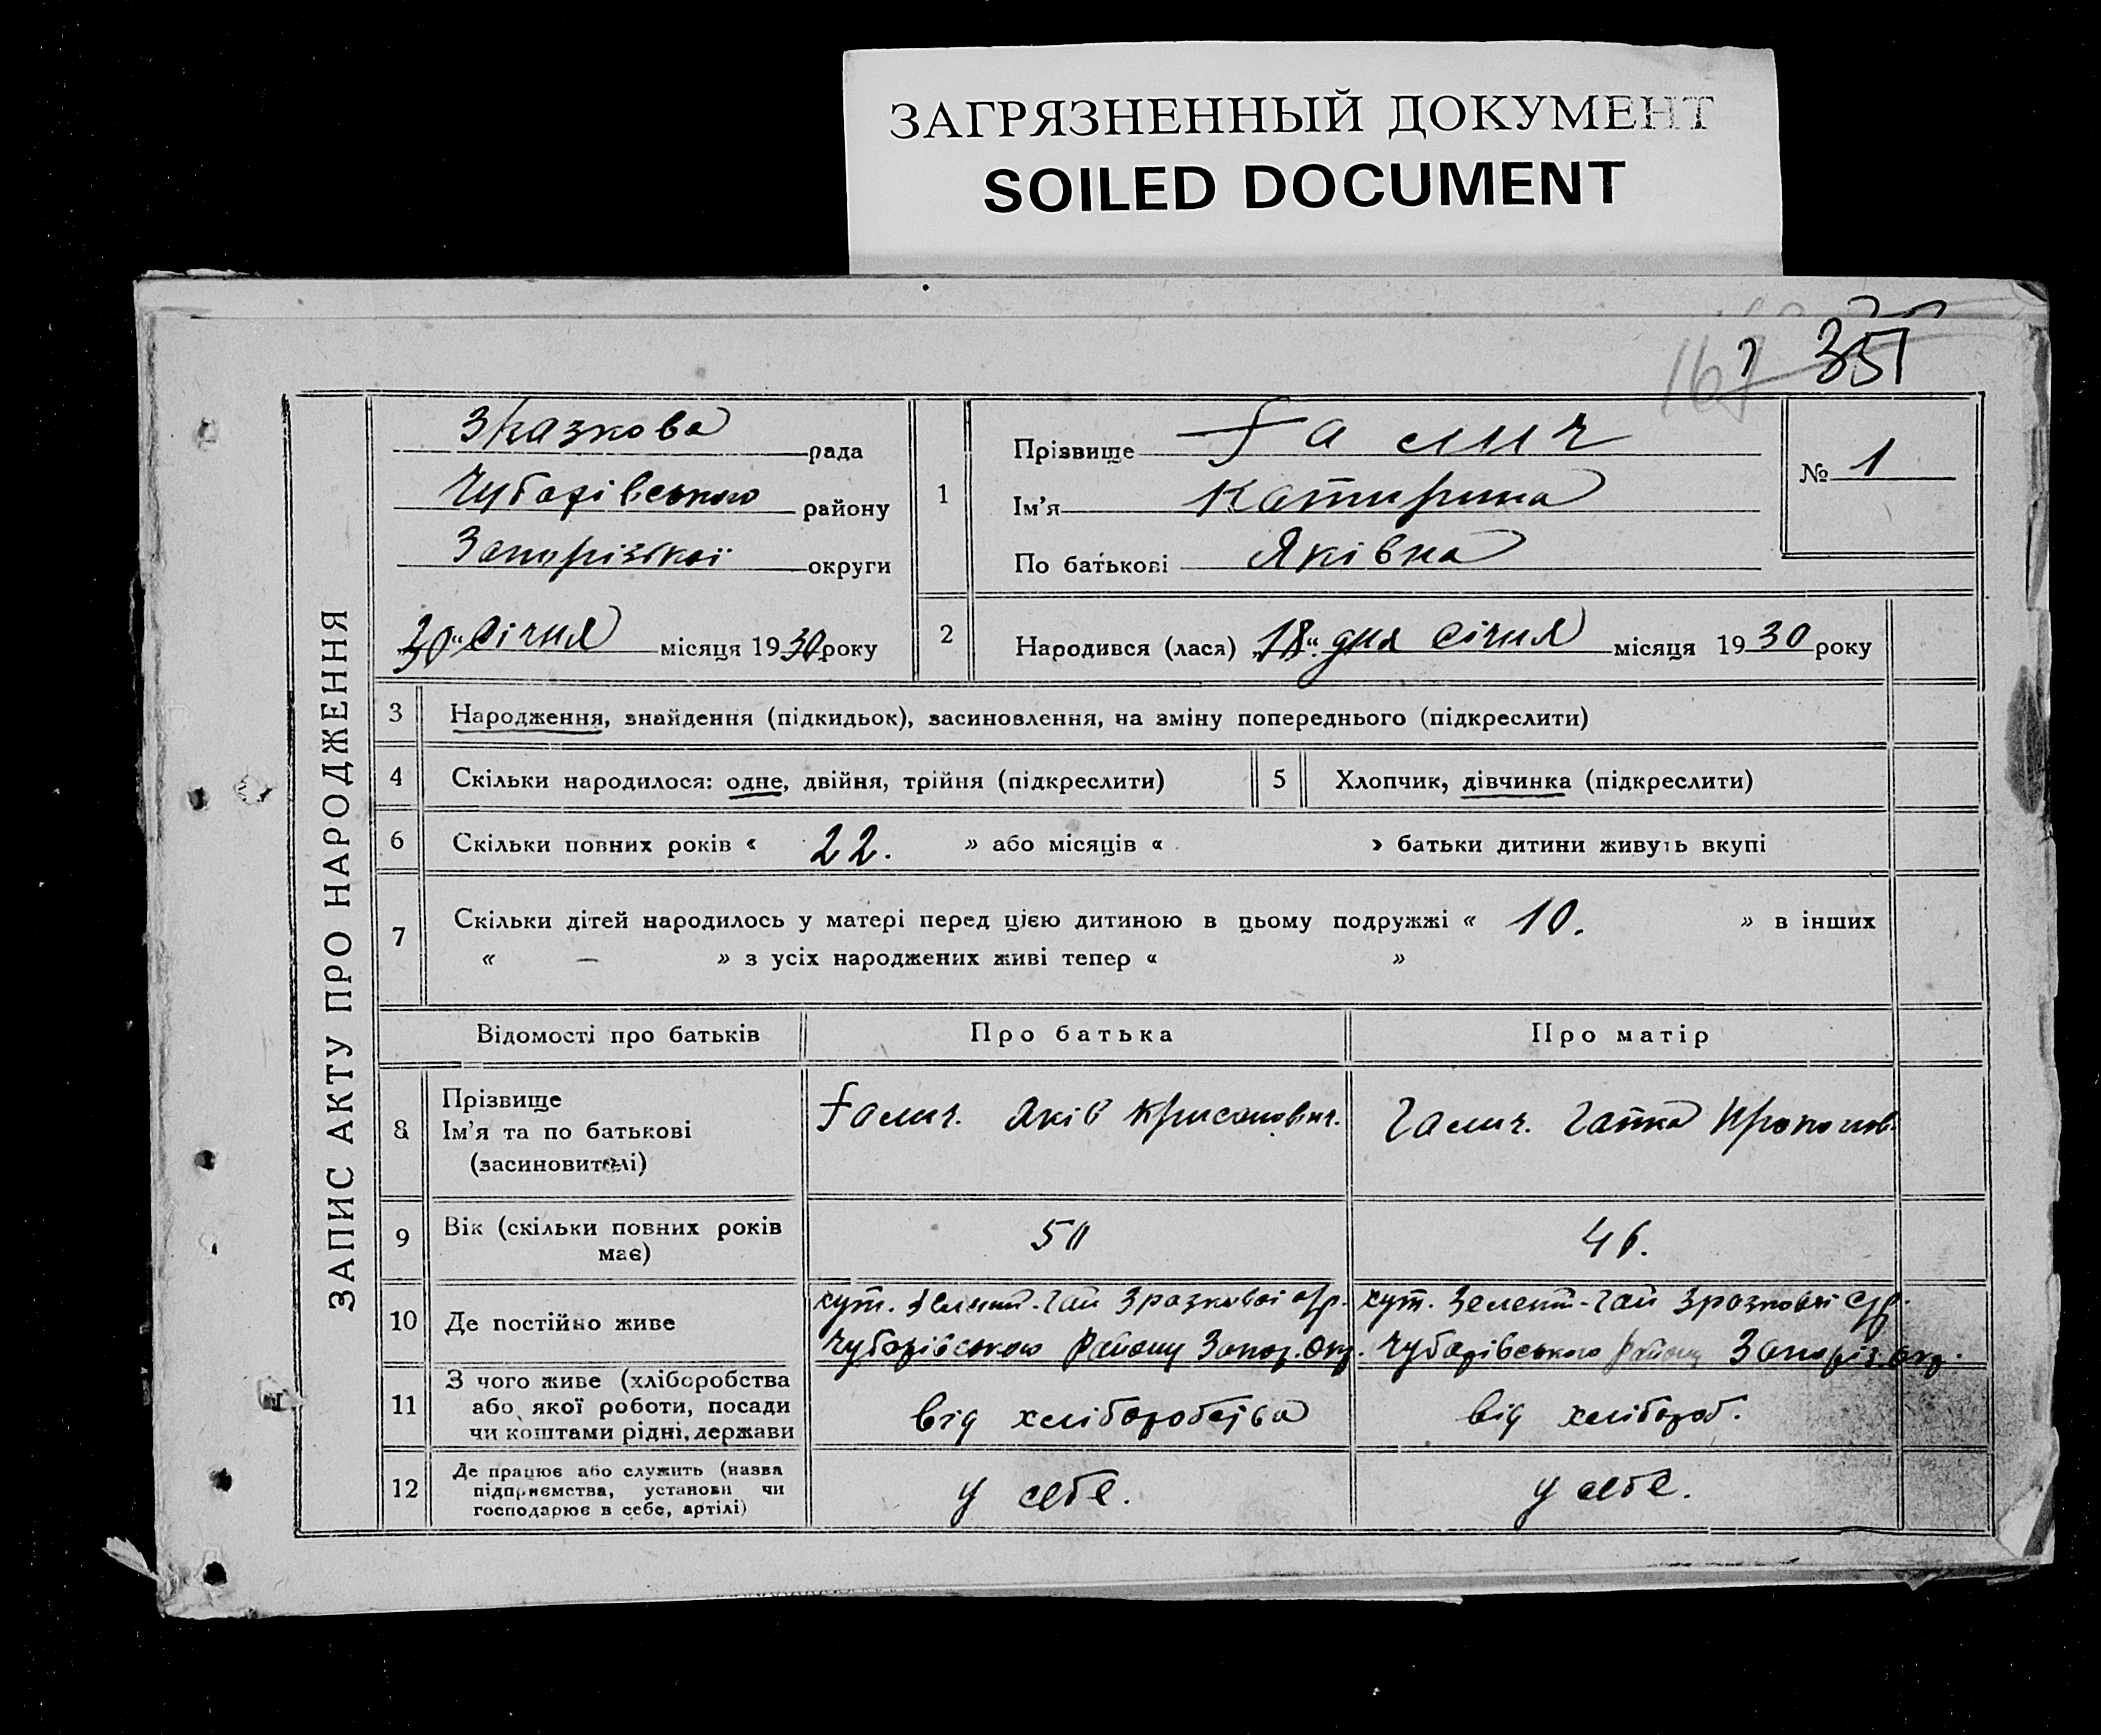 ЗАГРЯЗНЕННЫЙ ДОКУМЕНТ
SOILED DOCUMENT
167 351
ЗАПИС АКТУ ПРО НАРОДЖЕННЯ
Зразкова рада
Чубарівського району
Запорізької округи
"30" Січня місяця 1930 року
1 Прізвище Галич
Ім'я Катирина
По батькові Яківна
№ 1
2 Народився (лася) "18" дня Січня місяця 1930 року
3 Народження, знайдення (підкидьок), засиновлення, на зміну попереднього (підкреслити)
4 Скільки народилося: одне, двійня, трійня (підкреслити)
5 Хлопчик, дівчинка (підкреслити)
6 Скільки повних років « 22. » або місяців « » батьки дитини живуть вкупі
7 Скільки дітей народилось у матері перед цією дитиною в цьому подружжі « 10. » в інших
« — » з усіх народжених живі тепер « »
Відомості про батьків Про батька Про матір
8 Прізвище
Ім'я та по батькові
(засиновителі)
Галич. Яків Крисанович.
Галич. Гапка Прокопов.
9 Вік (скільки повних років
має)
50
46.
10 Де постійно живе
хут. Зелений-Гай Зразкової с/р.
Чубарівського Району Запор. Окр.
хут. Зелений-Гай Зразкової с/р.
Чубарівського Району Запоріз. окр.
11 З чого живе (хліборобства
або якої роботи, посади
чи коштами рідні, держави
від хліборобства
від хлібороб.
12 Де працює або служить (назва
підприємства, установи чи
господарює в себе, артілі)
у себе.
у себе.